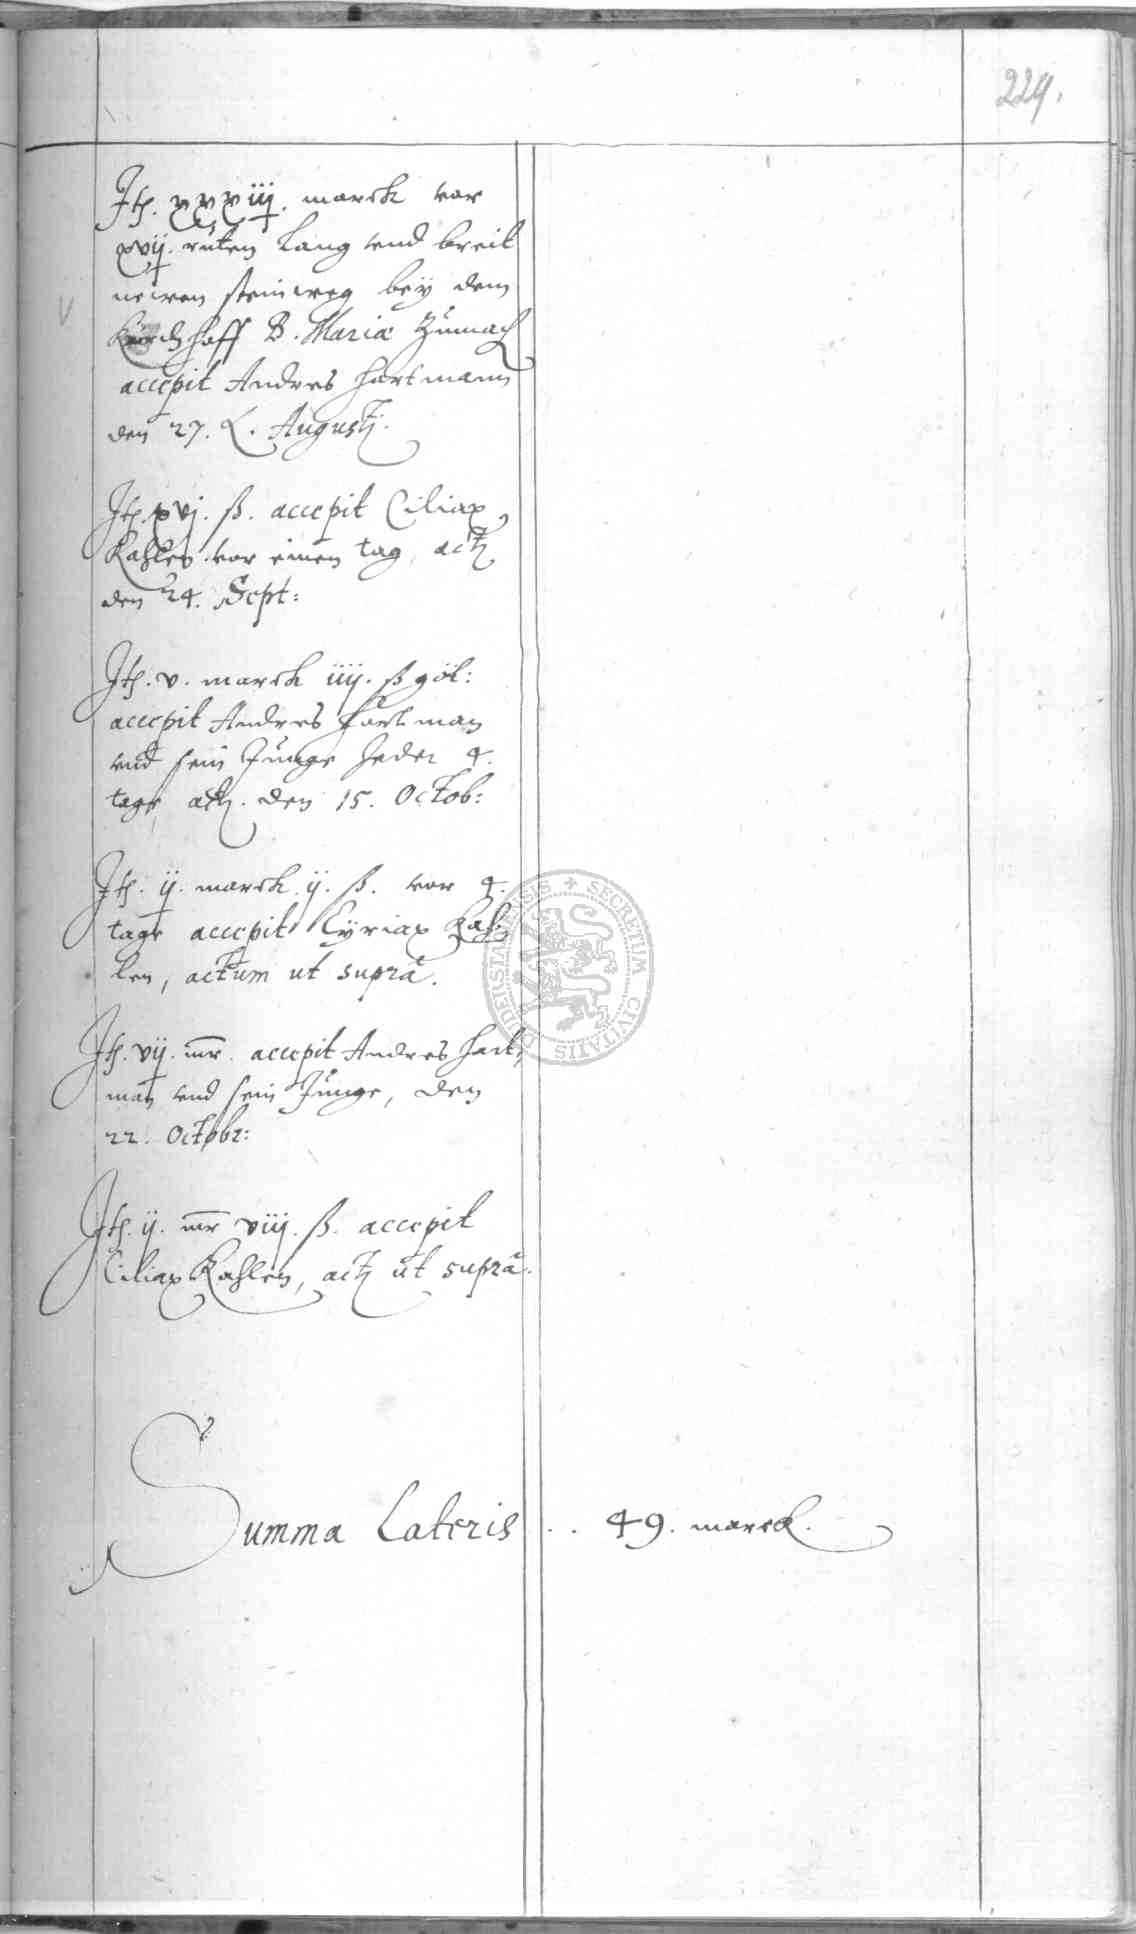 224.
Jtẽ. xxxiij. marck vor
xvij. ruten lang vnd breit
newen steinweg bey dem
Kirchhoff B. Maria Zumach
accepit Andres Hartmann
den 27. Augustj.
Jtẽ. xvj. ß. accepit Ciliax
Kahlen vor einen tag, actũ
den 24. Sept:
Jtẽ. v. marck iiij. ß göt:
accepit Andres Hartman
vnd sein Junge Jeder 4.
tage, actũ. den 15. Octob:
Jtẽ. ij. marck ij. ß. vor 4.
tage accepit Cyriax Kah-
len, actum ut supra.
Jtẽ. vij. mr. accepit Andres Hart-
man vnd sein Junge, den
22. Octobr:
Jtẽ. ij. mr viij. ß. accepit
Ciliax Kahlen, actũ ut supra.
Summa Lateris . . 49. marck.
SECRETUM CIVITATIS DUDERSTADENSIS